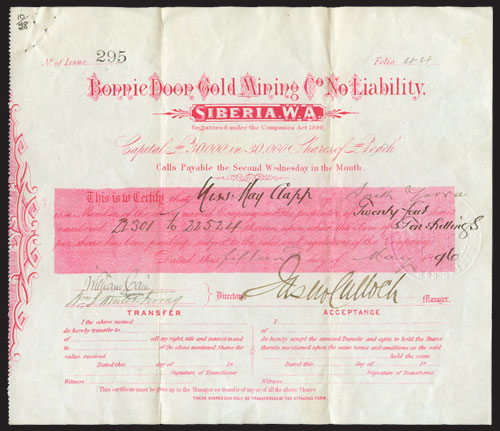 10
28
No of Issue 295
Folio 44
Bonnie Doon Gold Mining Co No Liability,
SIBERIA. W.A.
Registered under the Companies Act 1890,
Capital £30000 in 30,000 Shares of £1 each
Calls Payable the Second Wednesday in the Month.
This is to Certify that Miss May Clapp of South Yarra
is a Member of the
Twenty four
numbered 22501 to 22524
Ten shillings
per share has been paid
Dated this fifteenth day of May 1896
William Crain
Directors
Jas McCulloch
Manager.
TRANSFER
I the above named
do hereby transfer to
of all my right, title and interest to and
of the above mentioned Shares for
value received
Dated this day of 18
Signature of Transferror
Witness
ACCEPTANCE
I of
do hereby accept the annexed Transfer and agree to hold the Shares
therein mentioned upon the same terms and conditions as the said
held the same
Dated this day of 18
Signature of Transferree
Witness
This certificate must be given up to the Manager on transfer of any or of all the above Shares
THESE SHARES CAN ONLY BE TRANSFERRED BY THE ATTACHED FORM.